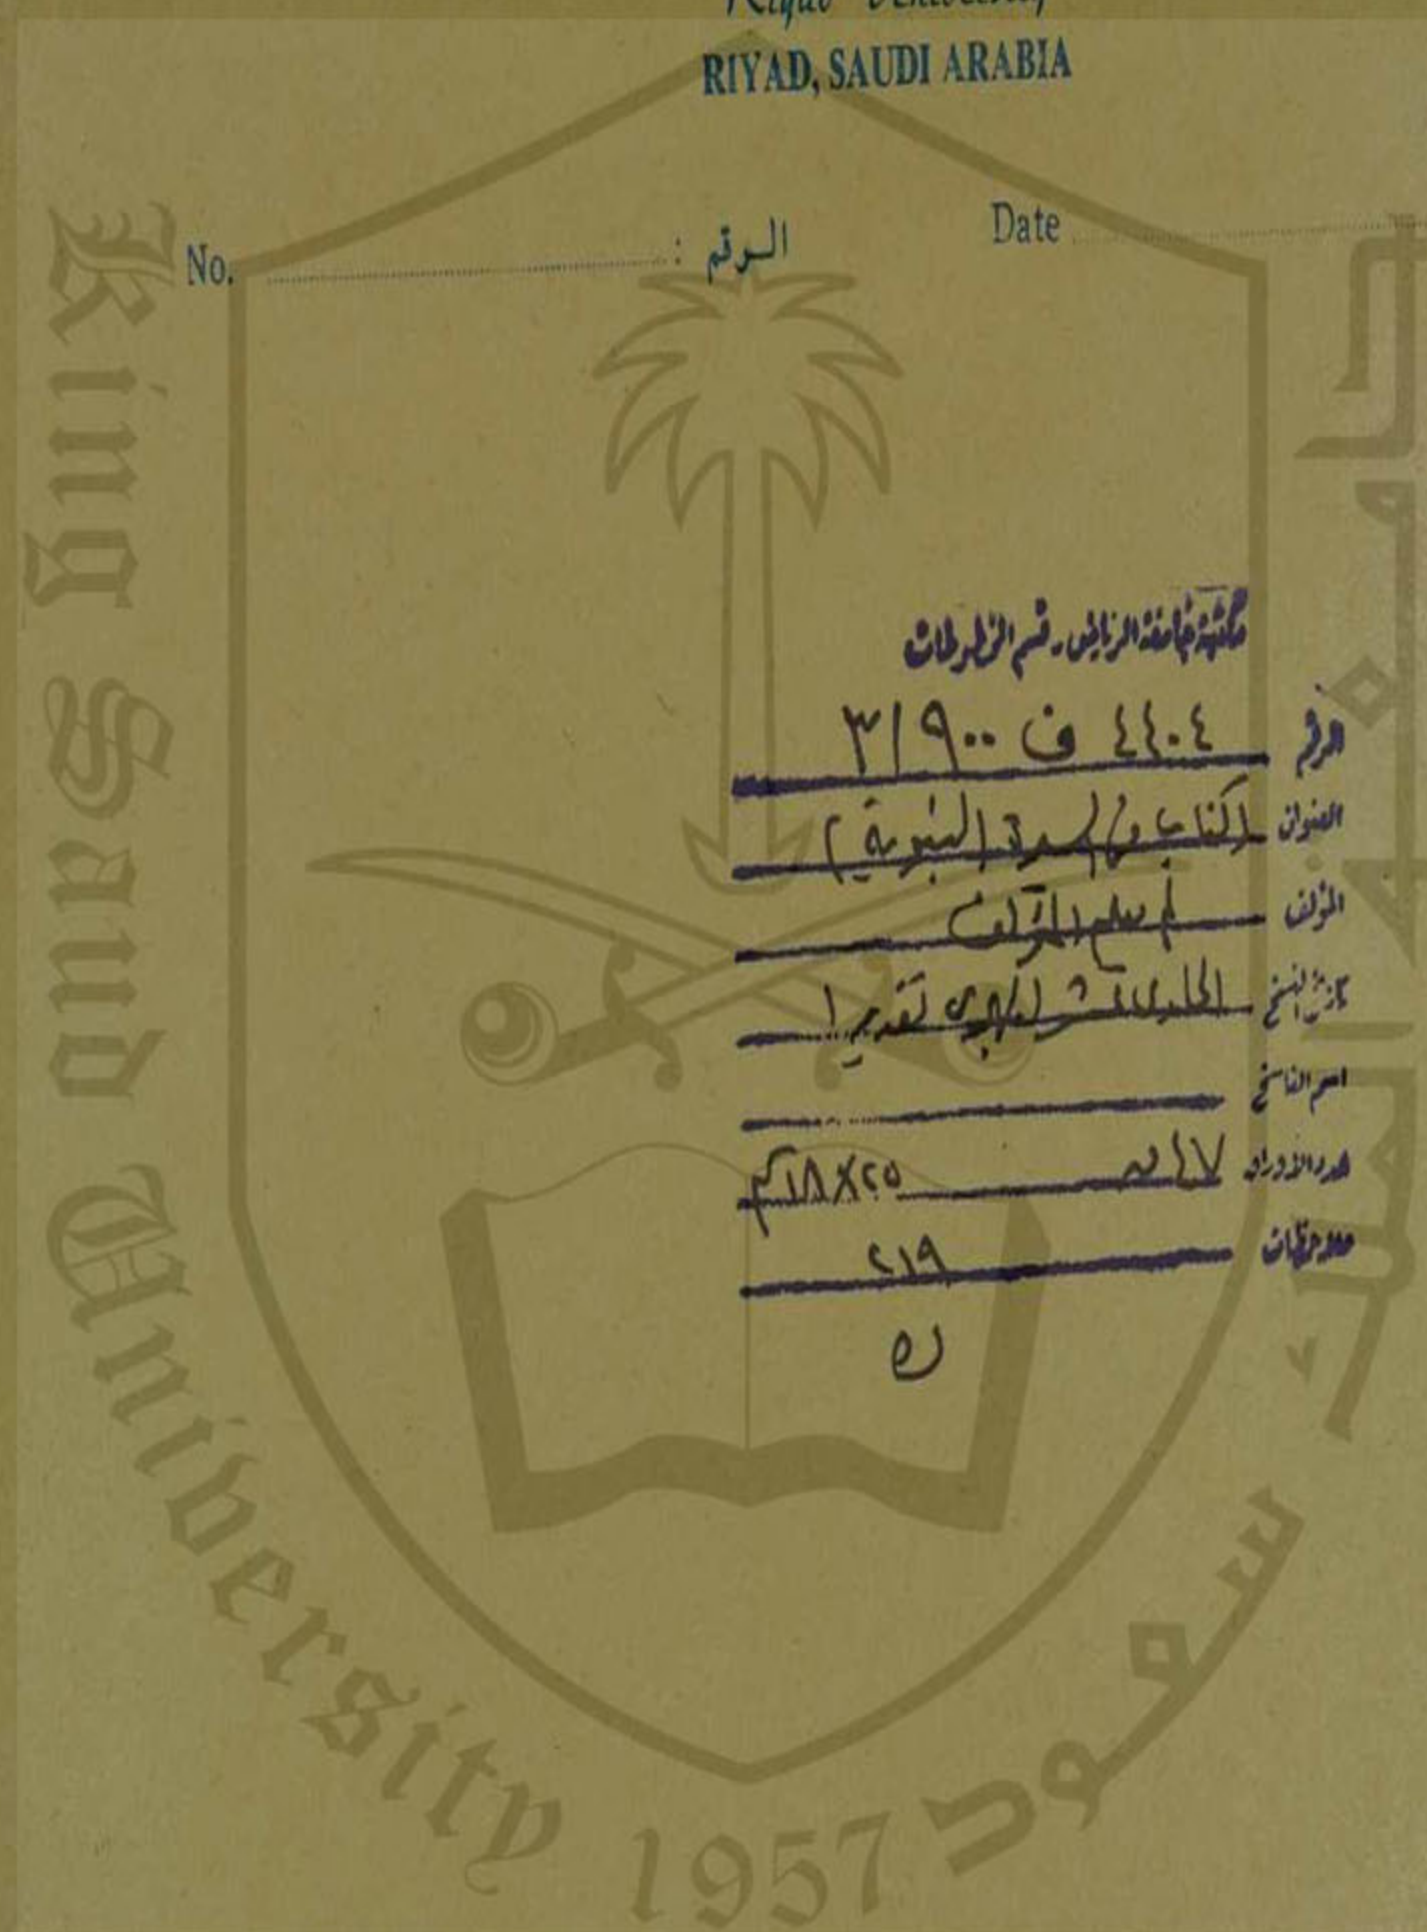 Riyad University
RIYAD, SAUDI ARABIA
No. الرقم :
Date
مكتبة جامعة الرياض - قسم المخطوطات
الرقم ٤٤٠٤ ف ٣/٩٠٠
العنوان (كتاب في السيرة النبوية)
المؤلف لم يعلم المؤلف
تاريخ النسخ الحادي عشر الهجري تقديرا
اسم الناسخ
عدد الأوراق ٤٧ ق ٢٥×١٨ كم
ملاحظات ٢١٩
King Saud University 1957
سعود